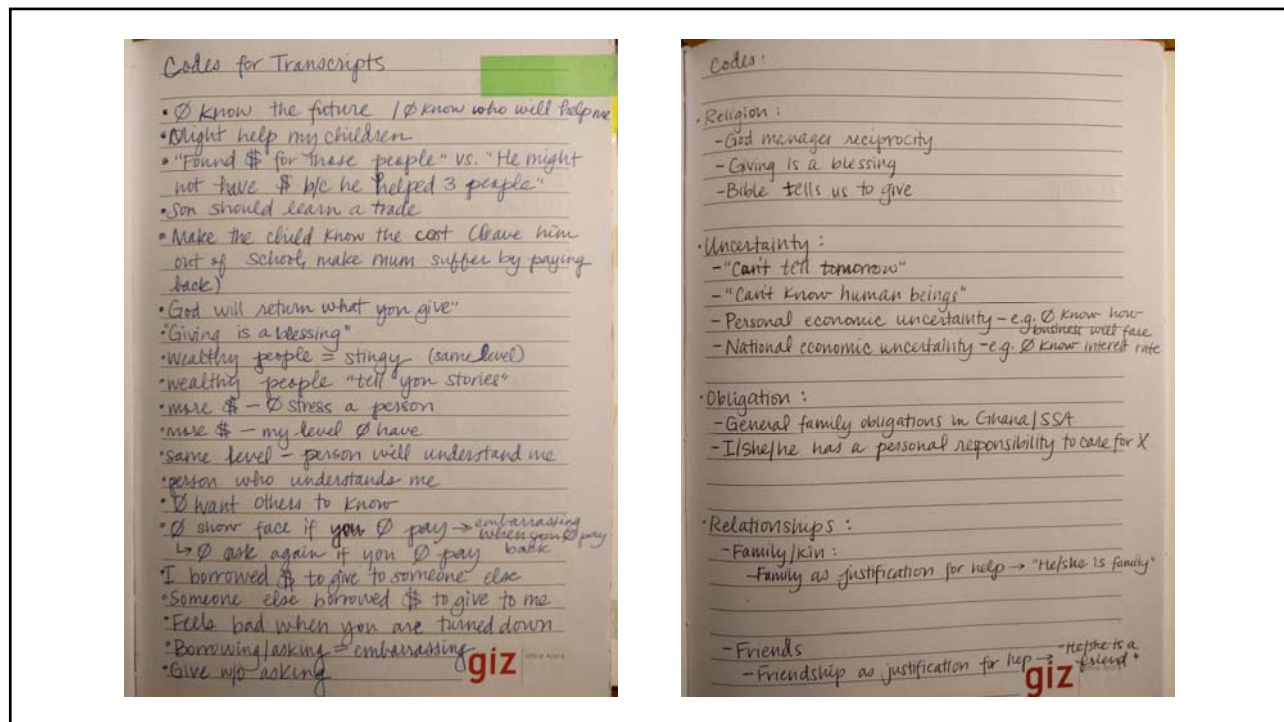 Codes for Transcripts
• Ø know the future / Ø know who will help me
• Might help my children
• "Found $ for those people" vs. "He might
not have $ b/c he helped 3 people"
• Son should learn a trade
• Make the child know the cost (leave him
out of school, make mum suffer by paying
back)
• God will return what you give"
• "Giving is a blessing"
• wealthy people = stingy (same level)
• wealthy people "tell you stories"
• more $ – Ø stress a person
• more $ – my level Ø have
• same level – person will understand me
• person who understands me
• Ø want others to know
• Ø show face if you Ø pay → embarrassing
when you Ø pay
back
↳ Ø ask again if you Ø pay
• I borrowed $ to give to someone else
• Someone else borrowed $ to give to me
• Feels bad when you are turned down
• Borrowing/asking = embarrassing
• Give w/o asking
giz
Codes:
• Religion:
- God manages reciprocity
- Giving is a blessing
- Bible tells us to give
• Uncertainty:
- "Can't tell tomorrow"
- "Can't know human beings"
- Personal economic uncertainty – e.g. Ø know how
business will fare
- National economic uncertainty – e.g. Ø know interest rate
• Obligation:
- General family obligations in Ghana/SSA
- I/she/he has a personal responsibility to care for X
• Relationships:
- Family/kin:
- Family as justification for help → "He/she is family"
- Friends
- Friendship as justification for hep → "He/she is a
friend"
giz